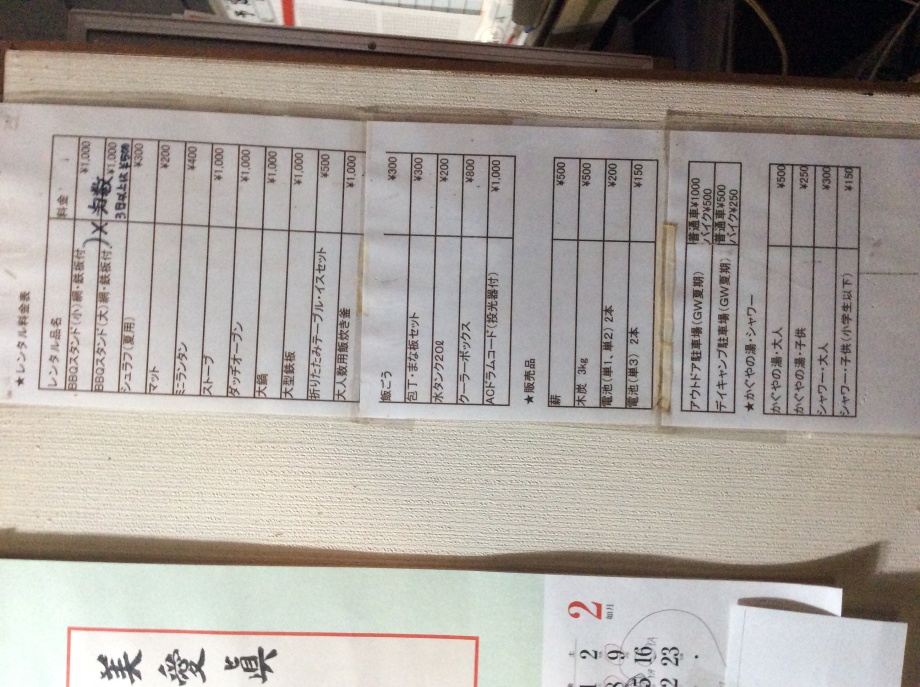 ★レンタル料金表
レンタル品名 料金
BBQスタンド(小)網・鉄板付 ¥1,000
BBQスタンド(大)網・鉄板付 ¥1,000
シュラフ(夏用) ¥300
)×
3日以上は ¥500
マット ¥200
ミニランタン ¥400
ストーブ ¥1,000
ダッチオーブン ¥1,000
大鍋 ¥1,000
大型鉄板 ¥1,000
折りたたみテーブル・イスセット ¥500
大人数用飯炊き釜 ¥1,000
飯ごう ¥300
包丁・まな板セット ¥300
水タンク20ℓ ¥200
クーラーボックス ¥800
ACドラムコード(投光器付) ¥1,000
★販売品
薪 ¥500
木炭 3kg ¥500
電池(単1、単2) 2本 ¥200
電池(単3) 2本 ¥150
アウトドア駐車場(GW夏期) 普通車¥1000
バイク¥500
デイキャンプ駐車場(GW夏期) 普通車¥500
バイク¥250
★かぐやの湯・シャワー
かぐやの湯・大人 ¥500
かぐやの湯・子供 ¥250
シャワー・大人 ¥300
シャワー・子供(小学生以下) ¥150
美愛真
2
如月
土
2
9
16
23